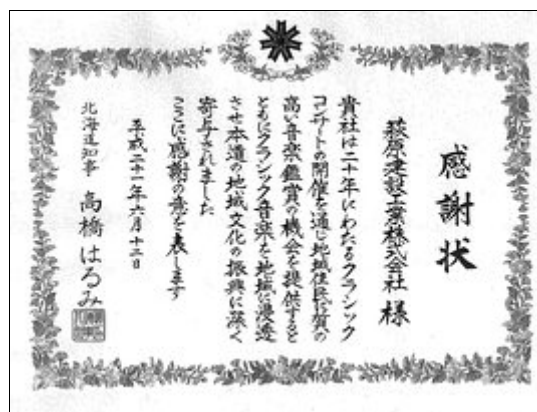 感謝状
萩原建設工業株式会社 様
貴社は二十年にわたるクラシック
コンサートの開催を通じ地域住民に質の
高い音楽鑑賞の機会を提供すると
ともにクラシック音楽を地域に浸透
させ本道の地域文化の振興に深く
寄与されました
ここに感謝の意を表します
平成二十一年六月十二日
北海道知事 高橋はるみ